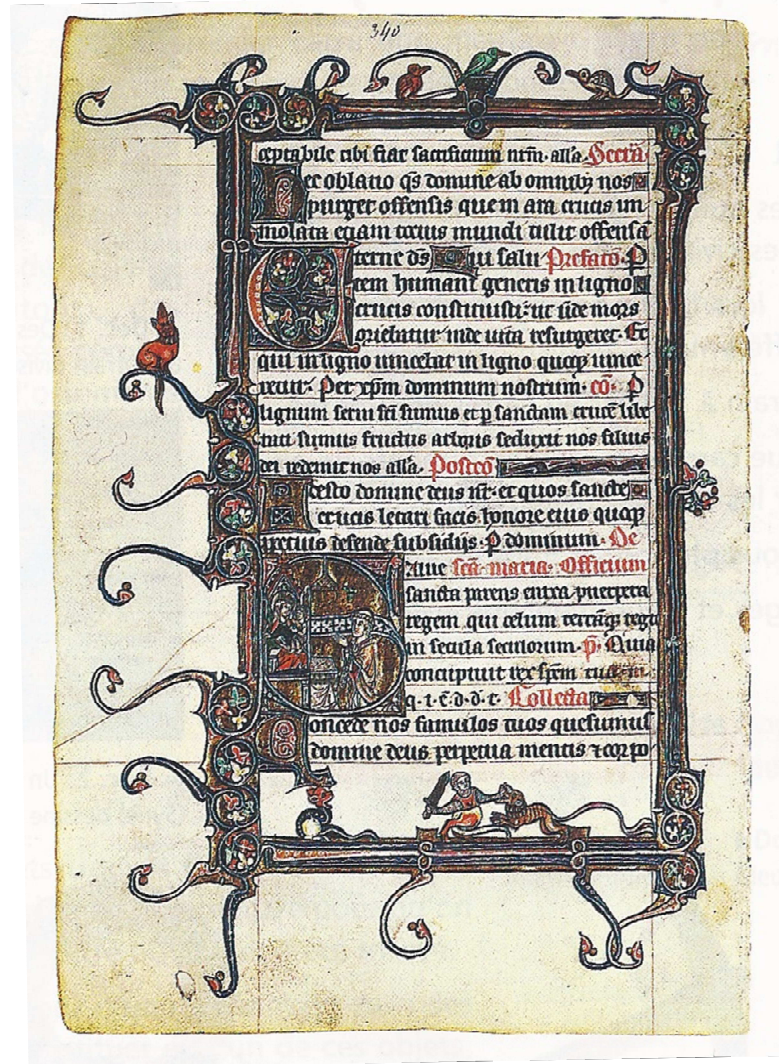 340
ceptabile tibi fiat sacrificium nrm. alla. Secta
ec oblatio qs domine ab omnibz nos
purget offensis que in ara crucis im
molata etiam totius mundi tulit offensa
Eterne ds Qui salu Prefato. P
tem humani generis in ligno
crucis constituisti: ut unde mors
oriebatur inde uita resurgeret. Et
qui in ligno uincebat in ligno quoqz uince
retur. Per xpm dominum nostrum. co. P
lignum serui fci sumus et p sanctam cruce libe
rati sumus fructus arboris seduxit nos filius
dei redemit nos alla. Postco
Adesto domine deus nr. et quos sancte
crucis letari facis honore eius quoqz
petuis defende subsidijs. P dominum. De
Salue sca maria. Officium
sancta parens enixa puerpera
regem qui celum terramqz regit
in secula seculorum. p. Quia
concupiuit rex spem tuam
q. t. e. d. d. t. Collecta
Concede nos famulos tuos quesumus
domine deus perpetua mentis et corpo